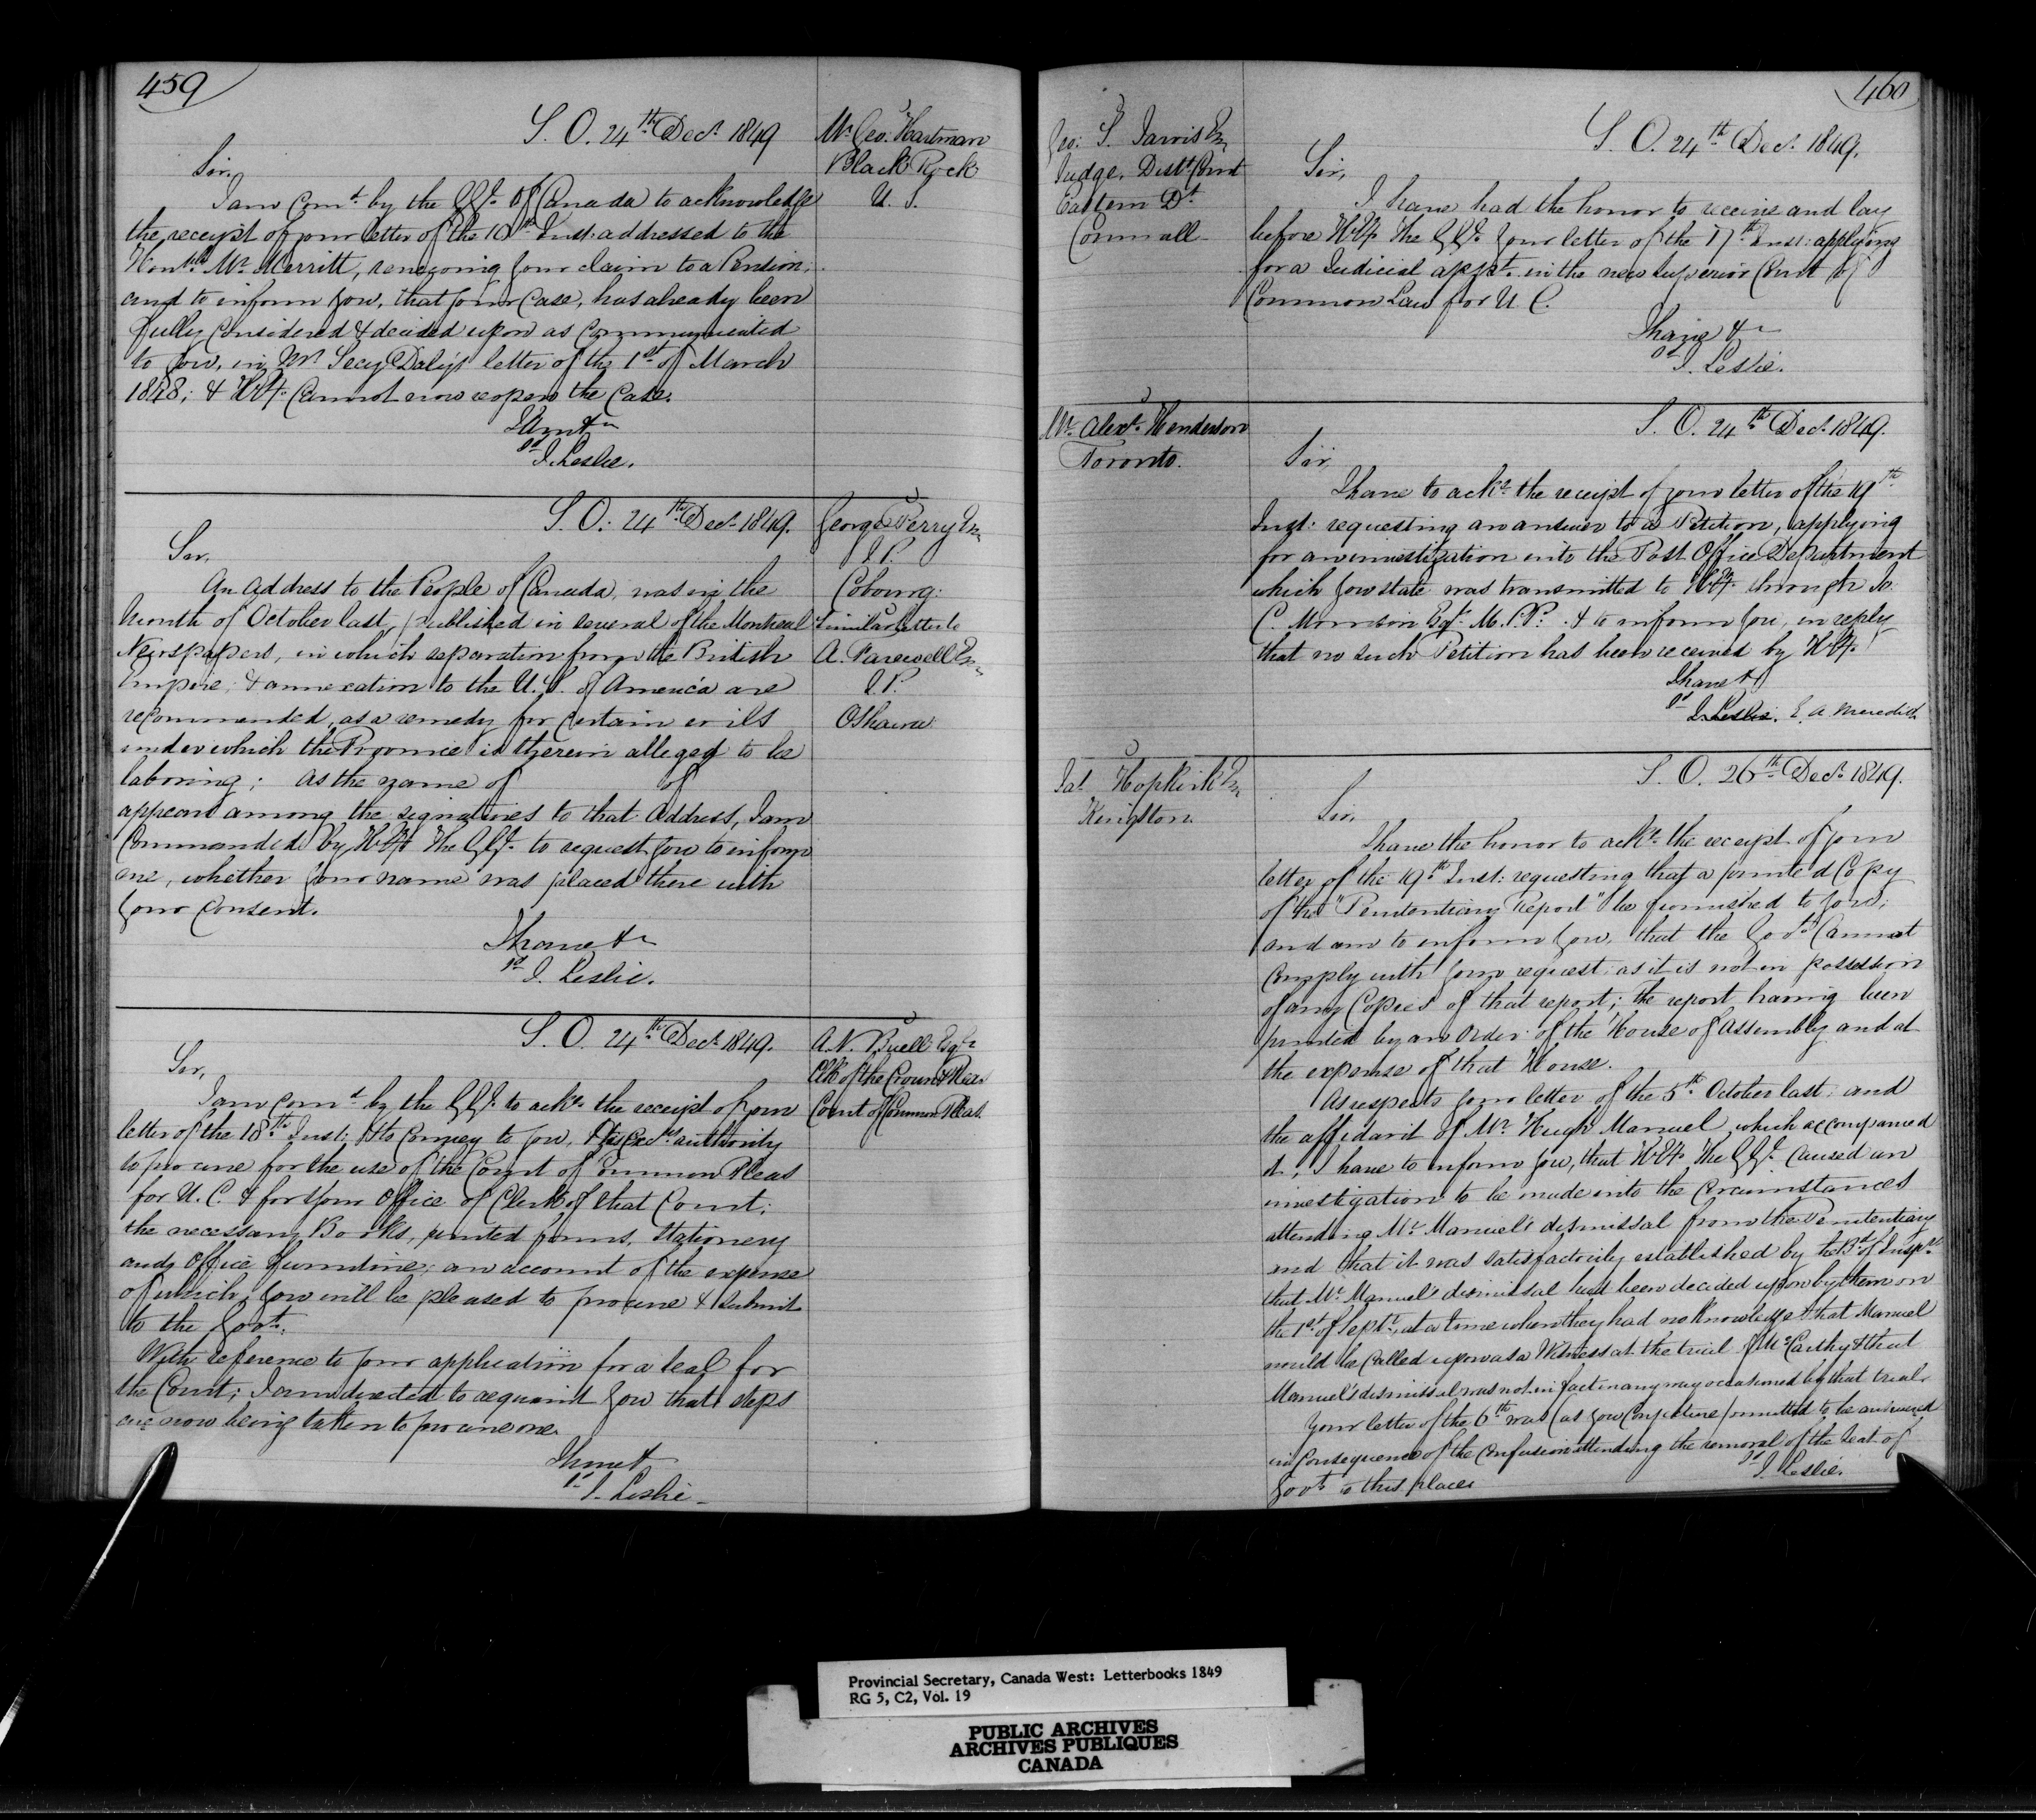 459
S. O. 24th Decr 1849
Mr Geo: Hartman
Black Rock
U. S.
Sir,
I am Comd by the G.G. of Canada to acknowledge
the receipt of your letter of the 10th Inst: addressed to the
Honble Mr Merritt, renewing your claim to a Pension;
and to inform you, that your Case, has already been
fully Considered & decided upon as Communicated
to you, in Mr Secy Daly's letter of the 1st of March
1848; & H.Ey. Cannot now reopen the Case.
I have &c
sd J. Leslie.
S. O. 24th Decr 1849.
George Perry Esq
J. P.
Cobourg.
Similar letter to
A. Farewell Esq
J. P.
Oshawa
Sir,
An Address to the People of Canada, was in the
Month of October last, published in several of the Montreal
Newspapers, in which separation from the British
Empire, & annexation to the U. S. of America are
recommended, as a remedy for certain evils
under which the Province is therein alleged to be
laboring; as the name of of
appears among the signatures to that Address, I am
Commanded by H.Ey The G.G. to request you to inform
me, whether your name was placed there with
your Consent.
I have &c
sd J. Leslie.
S. O. 24th Decr 1849.
A. N. Buell Esqr
Clk of the Crown & Pleas
Court of Common Pleas.
Sir,
I am Comd by the G.G. to ackn. the receipt of your
letter of the 18th Inst; & to Convey to you, His Excys authority
to procure for the use of the Court of Common Pleas
for U. C. & for your Office of Clerk of that Court;
the necessary Books, printed forms, Stationery
and Office furniture; an account of the expense
of which, you will be pleased to procure & submit
to the Govt.
With reference to your application for a seal for
the Court; I am directed to acquaint you that steps
are now being taken to procure one.
I have &
sd J. Leslie
460
Geo: S. Jarvis Esq
Judge, Distt Court
Eastern Dt
Cornwall
S. O. 24th Decr 1849.
Sir,
I have had the honor to receive and lay
before H.Ey. The G.G. your letter of the 17th Inst: applying
for a Judicial appt. in the new Superior Court of
Common Law for U. C.
I have &c
sd J. Leslie.
Mr Alexr Henderson
Toronto.
S. O. 24th Decr 1849.
Sir
I have to ackn. the receipt of your letter of the 19th
Inst: requesting an answer to a Petition, applying
for an investigation into the Post Office Department
which you state was transmitted to H.Ey. through
C. Morrison Esqr. M.P.P. & to inform you, in reply
that no such Petition has been received by H.Ey.
I have &
sd J. Leslie. E. A. Meredith
Jas Hopkirk Esq
Kingston.
S. O. 26th Decr 1849.
Sir,
I have the honor to ackn. the receipt of your
letter of the 19th Inst: requesting that a printed Copy
of the "Penitentiary Report" be furnished to you;
and am to inform you, that the Govt Cannot
Comply with your request; as it is not in possession
of any Copies of that report; the report having been
printed by an Order of the House of Assembly and at
the expense of that House.
As respects your letter of the 5th October last, and
the affidavit of Mr Hugh Manuel which accompanied
it; I have to inform you, that H.Ey The G.G. Caused an
investigation to be made into the Circumstances
attending Mr Manuel's dismissal from the Penitentiary
and that it was satisfactorily established by the Bd of Insprs
that Mr Manuel's dismissal had been decided upon by them on
the 1st of Septr, at a time when they had no knowledge that Manuel
would be Called upon as a Witness at the trial of McCarthy & that
Manuel's dismissal was not in fact in any way occasioned by that trial.
Your letter of the 6th was (as you Conjecture) omitted to be answered
in Consequence of the Confusion attending the removal of the Seat of
Govt to this place.
sd J. Leslie.
Provincial Secretary, Canada West: Letterbooks 1849
RG 5, C2, Vol. 19
PUBLIC ARCHIVES
ARCHIVES PUBLIQUES
CANADA